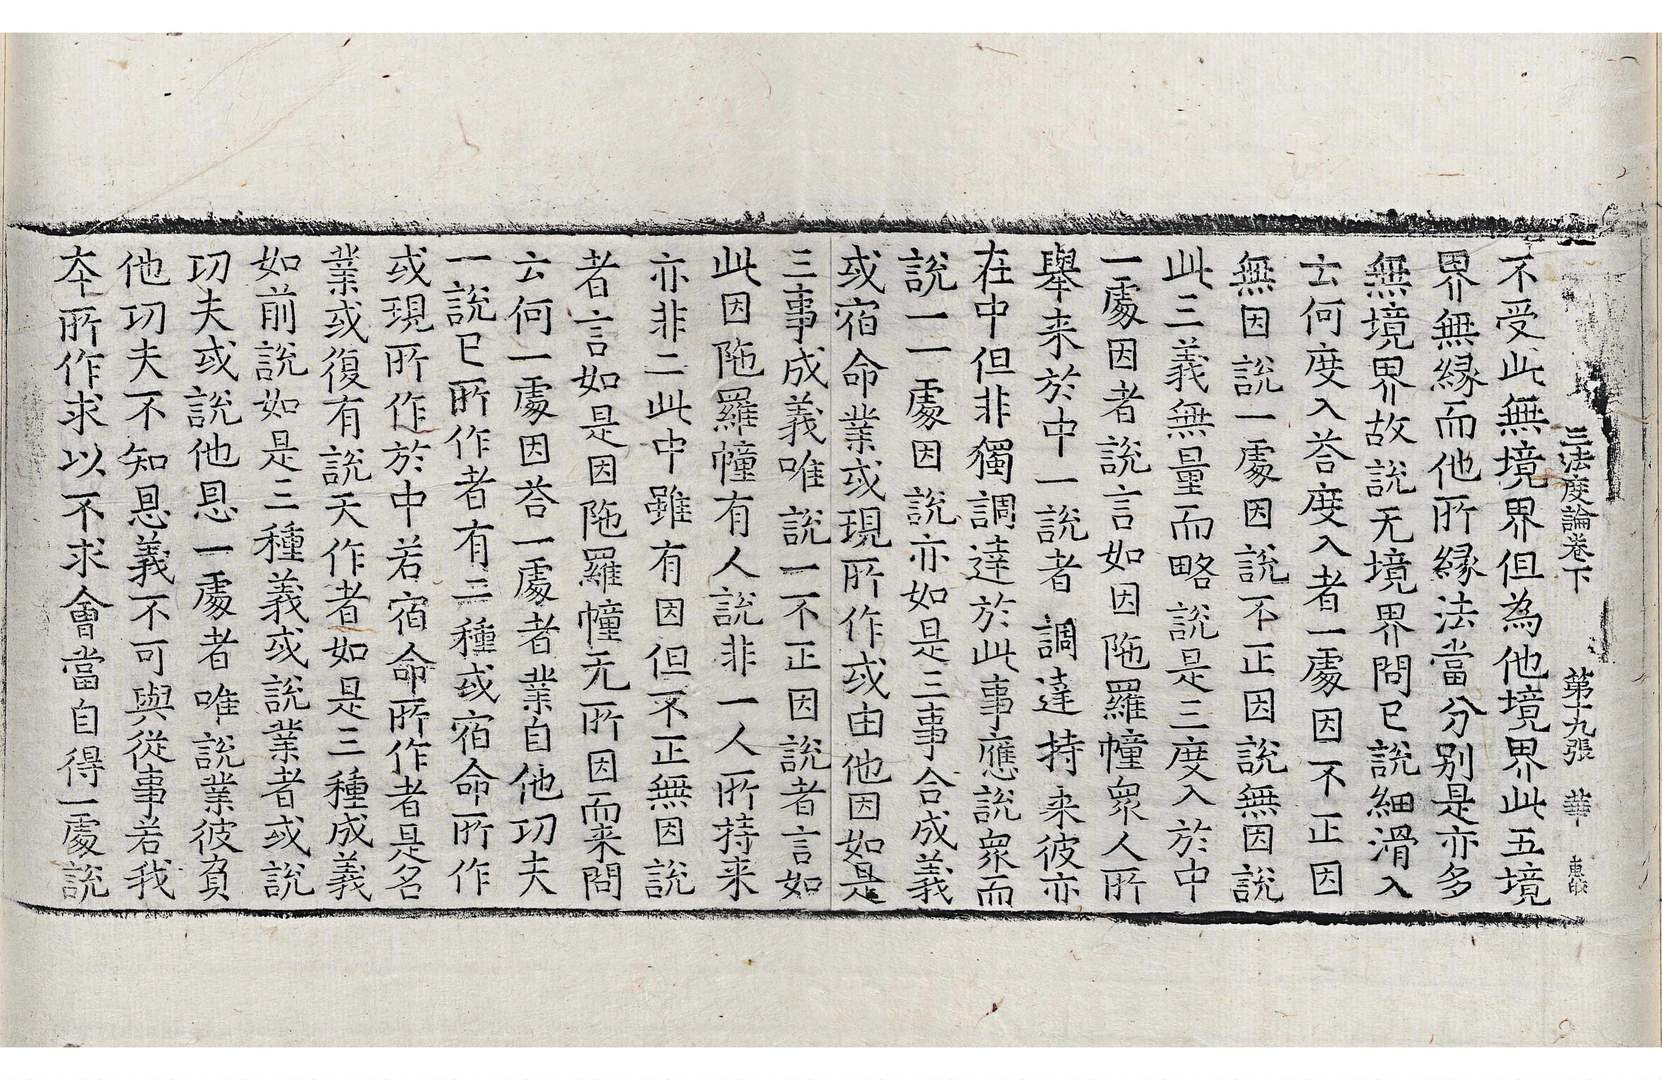 三法度論卷下　第十九張　華
不受此無境界但為他境界此五境
界無緣而他所緣法當分別是亦多
無境界故說无境界問已說細滑入
云何度入荅度入者一處因不正因
無因說一處因說不正因說無因說
此三義無量而略說是三度入於中
一處因者說言如因陁羅幢衆人所
舉来於中一說者調達持来彼亦
在中但非獨調達於此事應說衆而
說一一處因說亦如是三事合成義
或宿命業或現所作或由他因如是
三事成義唯說一不正因說者言如
此因陁羅幢有人說非一人所持来
亦非二此中雖有因但不正無因說
者言如是因陁羅幢无所因而来問
云何一處因荅一處者業自他功夫
一說已所作者有三種或宿命所作
或現所作於中若宿命所作者是名
業或復有說天作者如是三種成義
如前說如是三種義或說業者或說
功夫或說他恩一處者唯說業彼負
他功夫不知恩義不可與從事若我
本所作求以不求會當自得一處說